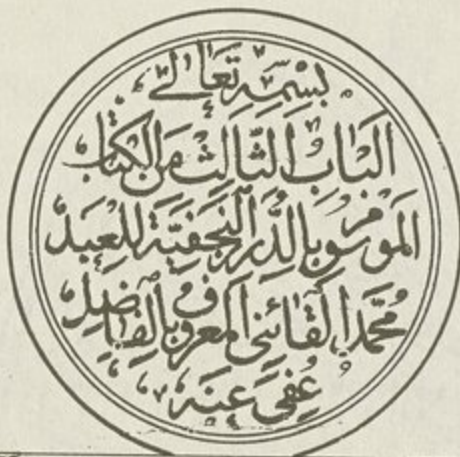 بِسْمِهِ تَعَالیٰ
الْبَابُ الثَّالِثُ مِنَ الْكِتَابِ
الْمَوْسُومِ بِالدُّرَرِ النَّجَفِيَّةِ لِلْعَبْدِ
مُحَمَّدٍ الْقَائِنِي الْمَعْرُوفِ بِالْفَاضِلِ
عُفِيَ عَنْهُ